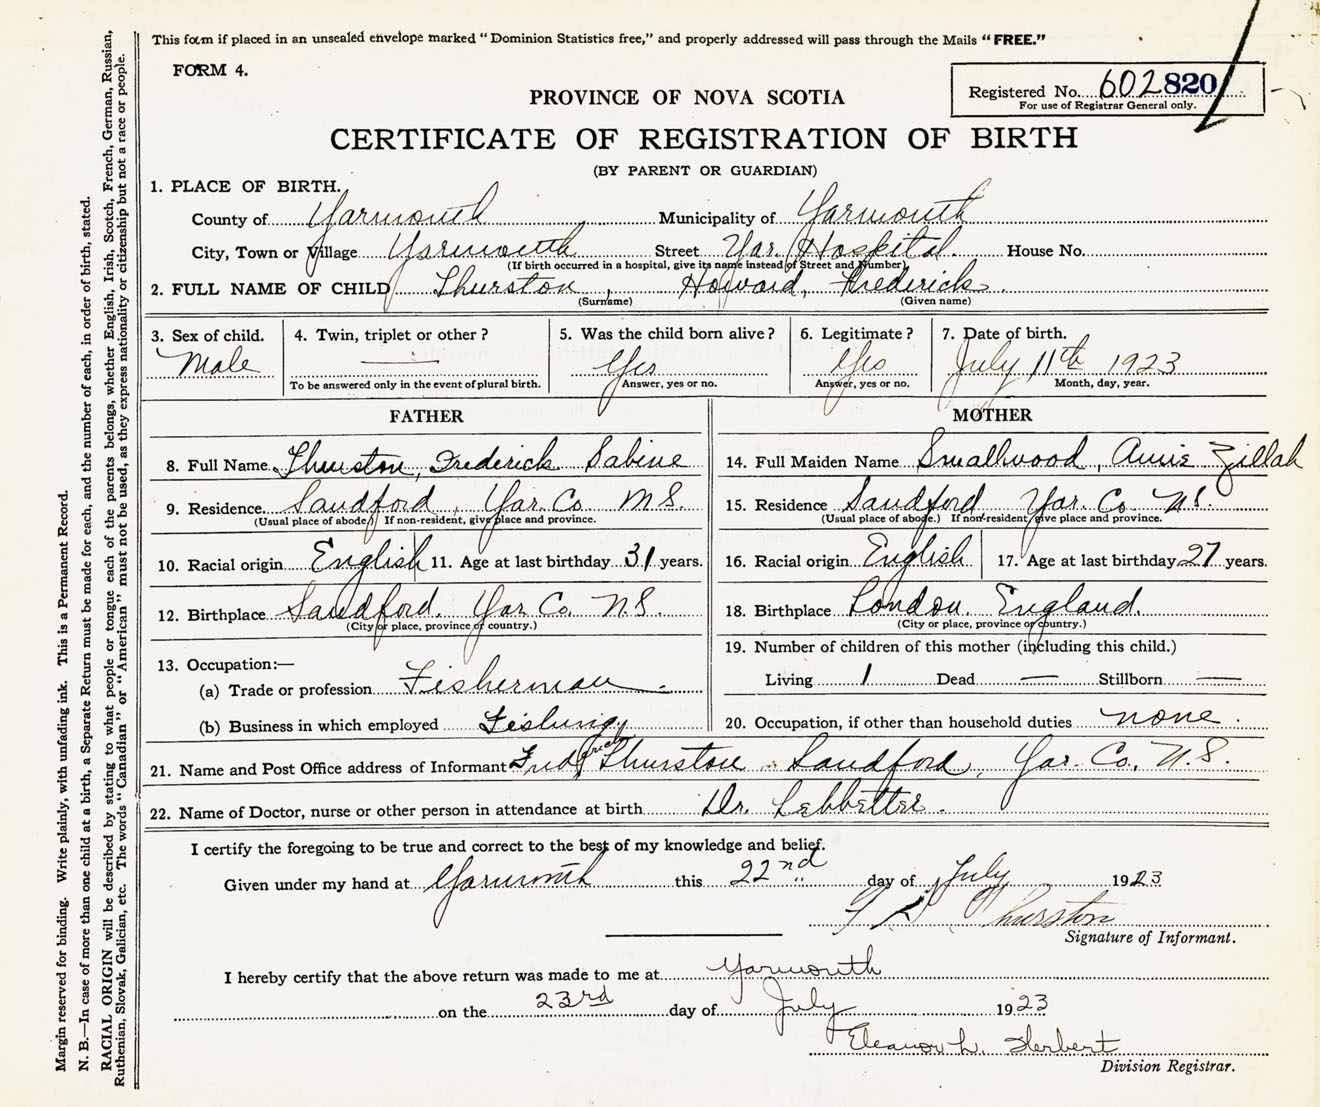 This form if placed in an unsealed envelope marked "Dominion Statistics free," and properly addressed will pass through the Mails "FREE."
FORM 4.
Registered No. 602820
For use of Registrar General only.
PROVINCE OF NOVA SCOTIA
CERTIFICATE OF REGISTRATION OF BIRTH
(BY PARENT OR GUARDIAN)
1. PLACE OF BIRTH.
County of Yarmouth Municipality of Yarmouth
City, Town or Village Yarmouth Street Yar. Hospital. House No.
(If birth occurred in a hospital, give its name instead of Street and Number)
2. FULL NAME OF CHILD Thurston, Howard, Frederick.
(Surname) (Given name)
3. Sex of child. 4. Twin, triplet or other? 5. Was the child born alive? 6. Legitimate? 7. Date of birth.
Male — Yes Yes July 11th 1923
To be answered only in the event of plural birth. Answer, yes or no. Answer, yes or no. Month, day, year.
FATHER
8. Full Name Thurston, Frederick Sabine
9. Residence. Sandford, Yar. Co. N.S.
(Usual place of abode.) If non-resident, give place and province.
10. Racial origin English 11. Age at last birthday 31 years.
12. Birthplace Sandford. Yar. Co. N.S.
(City or place, province or country.)
13. Occupation:—
(a) Trade or profession Fisherman
(b) Business in which employed Fishing
MOTHER
14. Full Maiden Name Smallwood, Annie Zillah
15. Residence Sandford, Yar. Co. N.S.
(Usual place of abode.) If non-resident, give place and province.
16. Racial origin English 17. Age at last birthday 27 years.
18. Birthplace London. England.
(City or place, province or country.)
19. Number of children of this mother (including this child.)
Living 1 Dead — Stillborn —
20. Occupation, if other than household duties none.
21. Name and Post Office address of Informant Frederick Thurston - Sandford, Yar. Co. N.S.
22. Name of Doctor, nurse or other person in attendance at birth Dr. Lebbetter.
I certify the foregoing to be true and correct to the best of my knowledge and belief.
Given under my hand at Yarmouth this 22nd day of July 1923
Thurston
Signature of Informant.
I hereby certify that the above return was made to me at Yarmouth
on the 23rd day of July 1923
Eleanor L. Herbert
Division Registrar.
Margin reserved for binding. Write plainly, with unfading ink. This is a Permanent Record.
N. B.—In case of more than one child at a birth, a Separate Return must be made for each, and the number of each, in order of birth, stated.
RACIAL ORIGIN will be described by stating to what people or tongue each of the parents belongs, whether English, Irish, Scotch, French, German, Russian,
Ruthenian, Slovak, Galician, etc. The words "Canadian" or "American" must not be used, as they express nationality or citizenship but not a race or people.